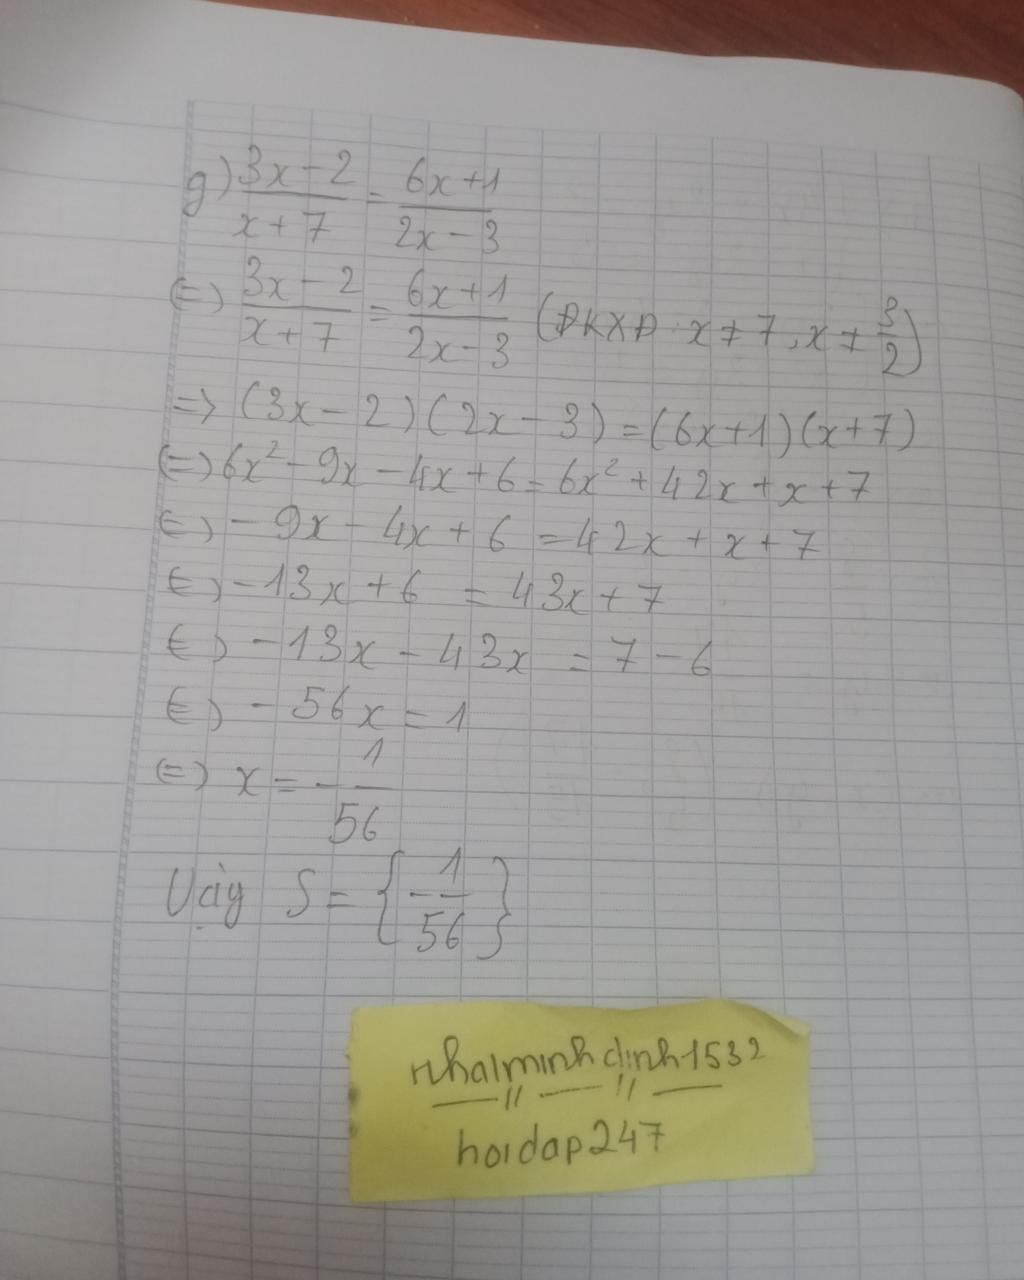 g) (3x-2)/(x+7) = (6x+1)/(2x-3)
(=) (3x-2)/(x+7) = (6x+1)/(2x-3) (ĐKXĐ x ≠ 7, x ≠ 3/2)
=> (3x-2)(2x-3) = (6x+1)(x+7)
(=) 6x² - 9x - 4x + 6 = 6x² + 42x + x + 7
(=) -9x - 4x + 6 = 42x + x + 7
(=) -13x + 6 = 43x + 7
(=) -13x - 43x = 7 - 6
(=) -56x = 1
(=) x = -1/56
Vậy S = {-1/56}
nhalminhdinh1532
hoidap247